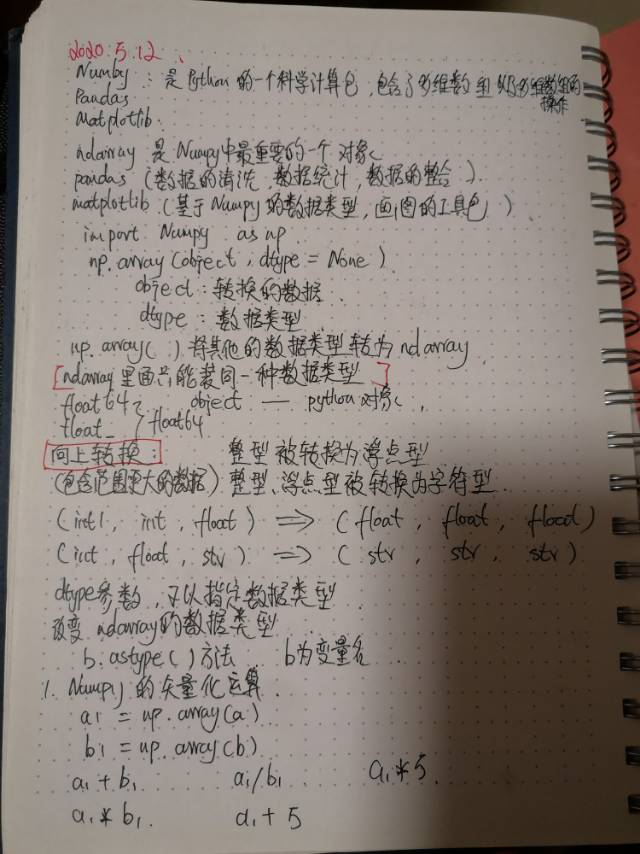 2020.5.12.
Numby：是Python的一个科学计算包，包含了多维数组以及多维数组的
操作
Pandas
Matplotlib
ndarray 是Numpy中最重要的一个对象
pandas（数据的清洗，数据统计，数据的整合）
matplotlib（基于Numpy的数据类型，画图的工具包）
import Numpy as np
np.array(object, dtype = None)
object：转换的数据
dtype：数据类型
np.array( ) 将其他的数据类型转为ndarray
[ndarray里面只能装同一种数据类型]
float64 object — python对象
float_ float64
向上转换： 整型被转换为浮点型
(包含范围更大的数据) 整型、浮点型被转换为字符型
(int, int, float) ⟹ (float, float, float)
(int, float, str) ⟹ (str, str, str)
dtype参数，可以指定数据类型
改变ndarray的数据类型
b.astype()方法 b为变量名
1. Numpy的矢量化运算
a1 = np.array(a)
b1 = np.array(b)
a1 + b1 a1/b1 a1*5
a1 * b1 a1 + 5